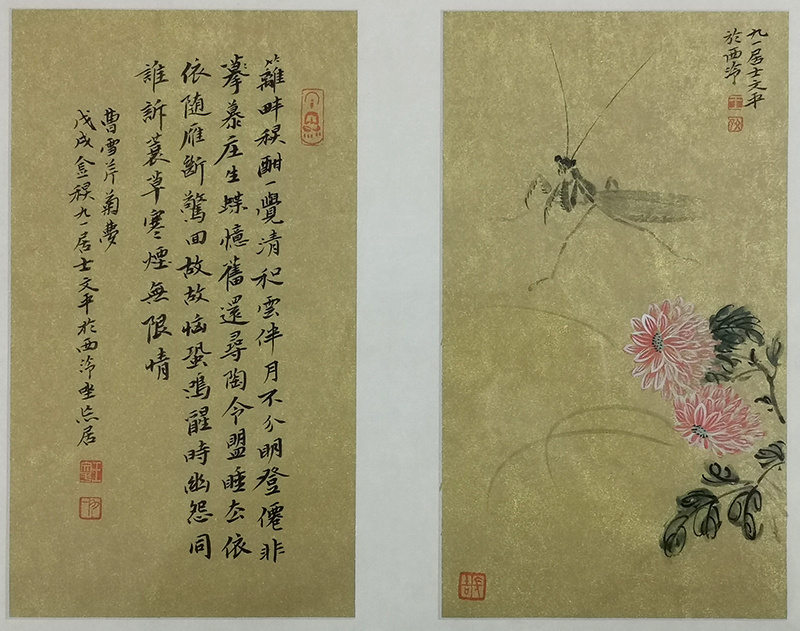 籬畔秋酣一覺清和雲伴月不分明登僊非
摹慕庄生蝶憶舊還尋陶令盟睡去依
依随雁斷驚回故故恼蛩鳴醒時幽怨同
誰訴蓑草寒煙無限情
曹雪芹菊夢
戊戌金秋九一居士文平於西泠坐忘居
九一居士文平
於西泠